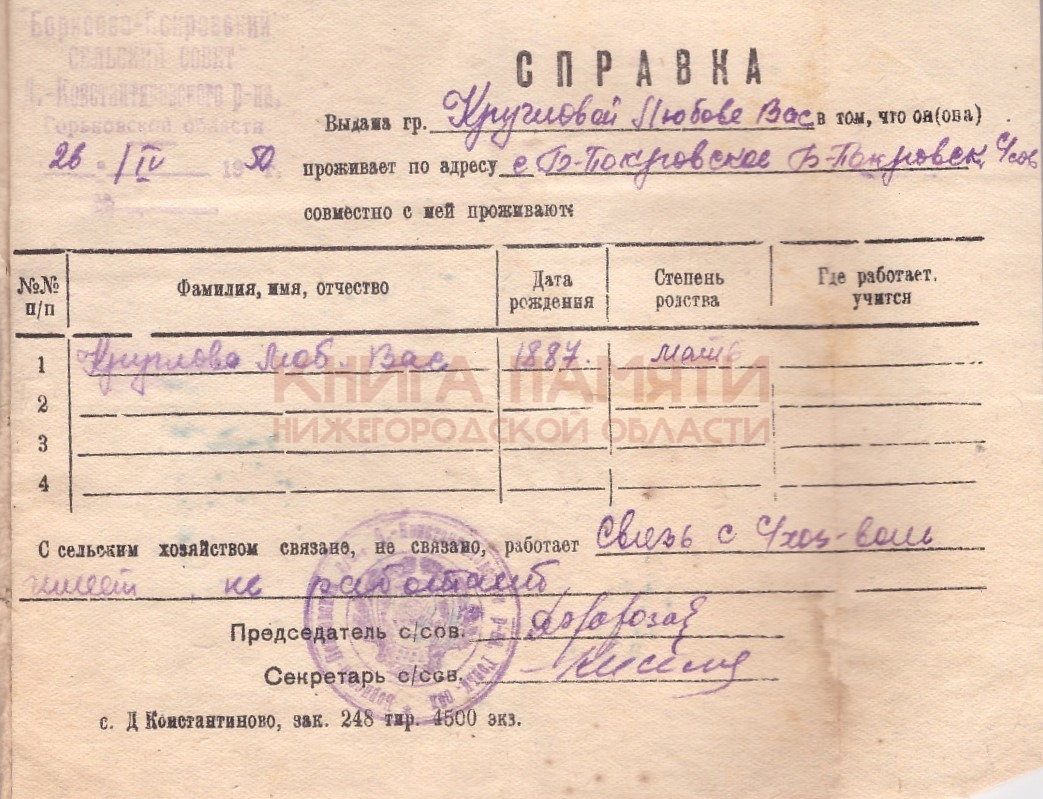 "Борисово-Покровский"
СЕЛЬСКИЙ СОВЕТ
Д.-Константиновского р-на,
Горьковской области
26 IV 1950 г.
СПРАВКА
Выдана гр. Кругловой Любове Вас в том, что он(она)
проживает по адресу с Б-Покровское Б-Покровск. с/сов
совместно с ней проживают:
№№ п/п
Фамилия, имя, отчество
Дата рождения
Степень родства
Где работает, учится
1 Круглова Люб. Вас. 1887. мать
2
3
4
КНИГА ПАМЯТИ
НИЖЕГОРОДСКОЙ ОБЛАСТИ
С сельским хозяйством связано, не связано, работает Связь с с/хоз-вом
имеет не работает
Председатель с/сов.
Секретарь с/сов.
с. Д Константиново, зак. 248 тир. 4500 экз.